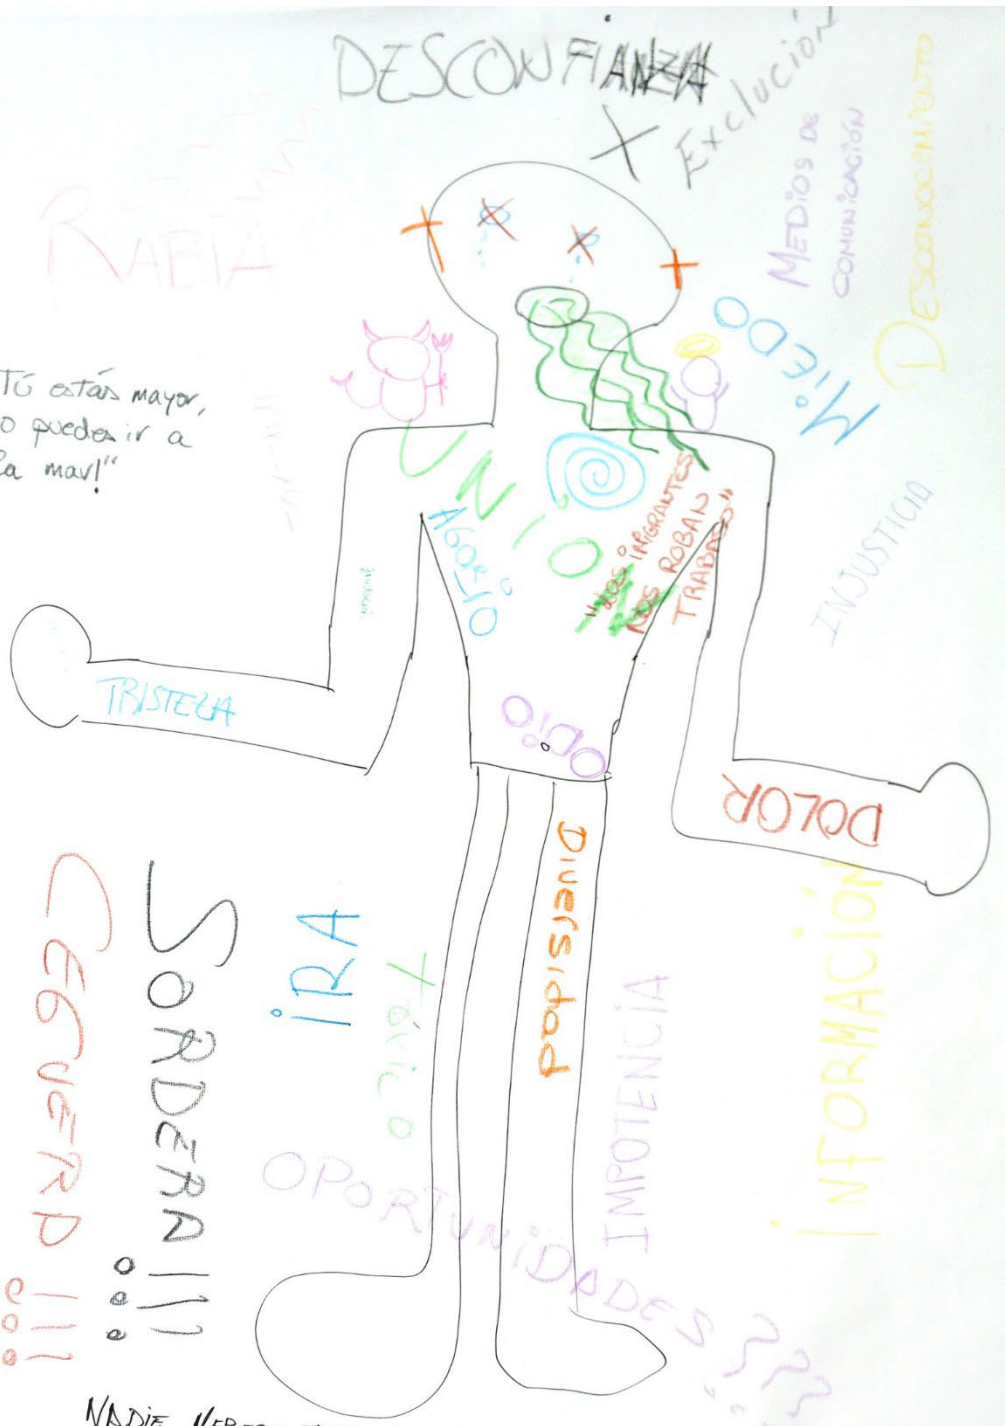 DESCONFIANZA
X Exclución
MEDIOS DE
COMUNICACIÓN
DESCONOCIMIENTO
RABIA
MIEDO
TÚ estás mayor,
o puedes ir a
la mar!"
UNIO
AGOBIO
"LOS INIGRANTES
NOS ROBAN
TRABAJO"
INJUSTICIA
TRISTEZA
ODIO
DOLOR
Diversidad
INFORMACIÓN
IRA
tóxico
SORDERA!!!
CEGUERA!!!
IMPOTENCIA
OPORTUNIDADES
NADIE